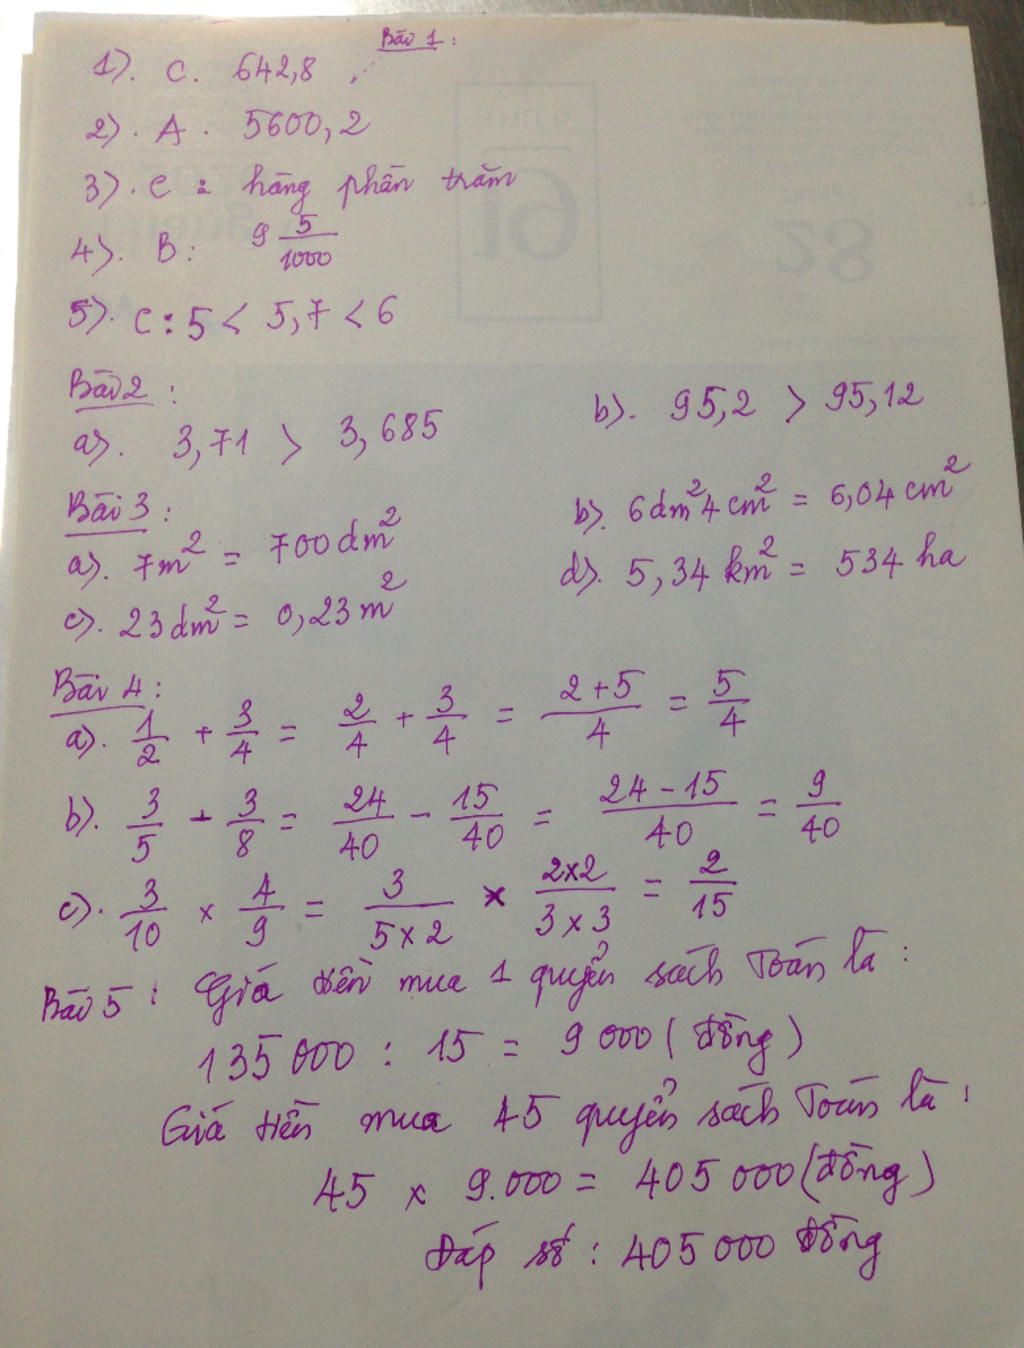 Bài 1:
1). C. 642,8
2). A. 5600,2
3). C: hàng phần trăm
4). B: 9 5/1000
5). C: 5 < 5,7 < 6
Bài 2:
a). 3,71 > 3,685 b). 95,2 > 95,12
Bài 3:
a). 7m² = 700 dm² b). 6dm² 4cm² = 6,04 cm²
c). 23 dm² = 0,23 m² d). 5,34 km² = 534 ha
Bài 4:
a). 1/2 + 3/4 = 2/4 + 3/4 = 2+5/4 = 5/4
b). 3/5 - 3/8 = 24/40 - 15/40 = 24-15/40 = 9/40
c). 3/10 × 4/9 = 3/5×2 × 2×2/3×3 = 2/15
Bài 5: Giá tiền mua 1 quyển sách Toán là:
135 000 : 15 = 9 000 (đồng)
Giá tiền mua 45 quyển sách Toán là:
45 × 9.000 = 405 000 (đồng)
Đáp số: 405 000 đồng